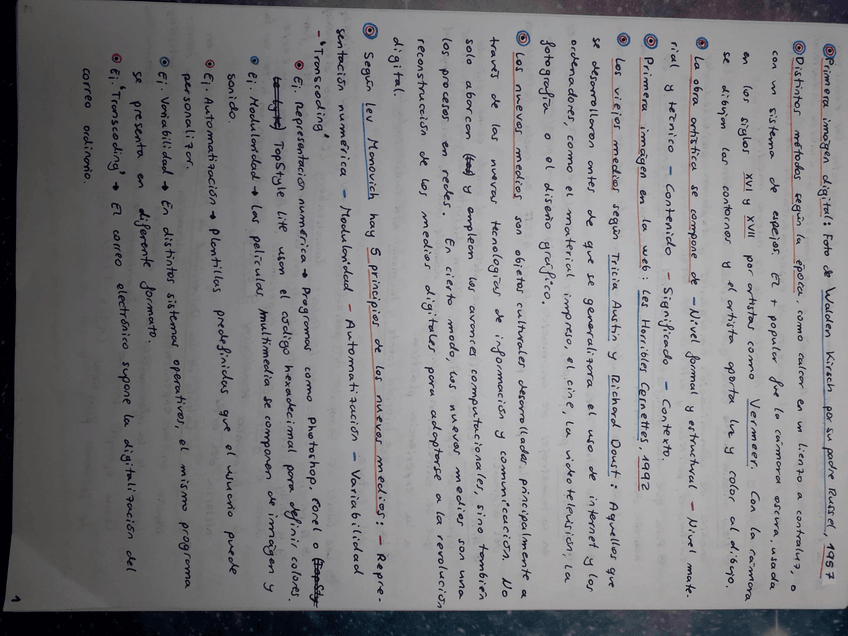 Primera imagen digital: Foto de Walden Kirsch por su padre Russel, 1957
Distintos métodos según la época, como calcar en un lienzo a contraluz, o
con un sistema de espejos. El + popular fue la cámara oscura, usada
en los siglos XVI y XVII por artistas como Vermeer. Con la cámara
se dibujan los contornos y el artista aporta luz y color al dibujo.
La obra artística se compone de - Nivel formal y estructural - Nivel mate-
rial y técnico - Contenido - Significado - Contexto.
Primera imagen en la web: Les Horribles Cernettes, 1992
Los viejos medios según Tricia Austin y Richard Doust: Aquellos que
se desarrollaron antes de que se generalizara el uso de internet y los
ordenadores, como el material impreso, el cine, la video televisión, la
fotografía o el diseño gráfico.
Los nuevos medios son objetos culturales desarrollados principalmente a
través de las nuevas tecnologías de información y comunicación. No
solo abarcan y emplean los avances computacionales, sino también
los procesos en redes. En cierto modo, los nuevos medios son una
reconstrucción de los medios digitales para adaptarse a la revolución
digital.
Según Lev Manovich hay 5 principios de los nuevos medios: - Repre-
sentación numérica - Modularidad - Automatización - Variabilidad
- 'Transcoding'
Ej. Representación numérica → Programas como Photoshop, Corel o
TopStyle Lite usan el código hexadecimal para definir colores.
Ej. Modularidad → Las películas multimedia se componen de imagen y
sonido.
Ej. Automatización → Plantillas predefinidas que el usuario puede
personalizar.
Ej. Variabilidad → En distintos sistemas operativos, el mismo programa
se presenta en diferente formato.
Ej. 'Transcoding' → El correo electrónico supone la digitalización del
correo ordinario.
1